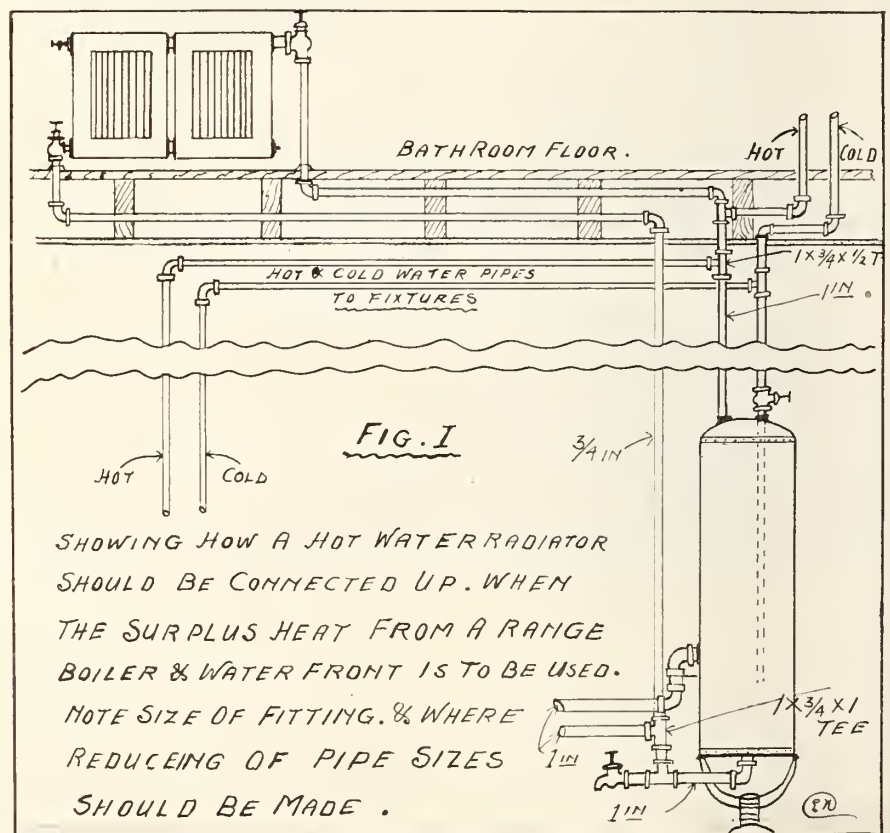 BATHROOM FLOOR.
HOT
COLD
1 x 3/4 x 1/2 T
HOT & COLD WATER PIPES
TO FIXTURES
1 IN.
FIG. I
3/4 IN
HOT
COLD
SHOWING HOW A HOT WATER RADIATOR
SHOULD BE CONNECTED UP. WHEN
THE SURPLUS HEAT FROM A RANGE
BOILER & WATER FRONT IS TO BE USED.
NOTE SIZE OF FITTING. & WHERE
REDUCEING OF PIPE SIZES
SHOULD BE MADE.
1 x 3/4 x 1
TEE
1 IN
1 IN